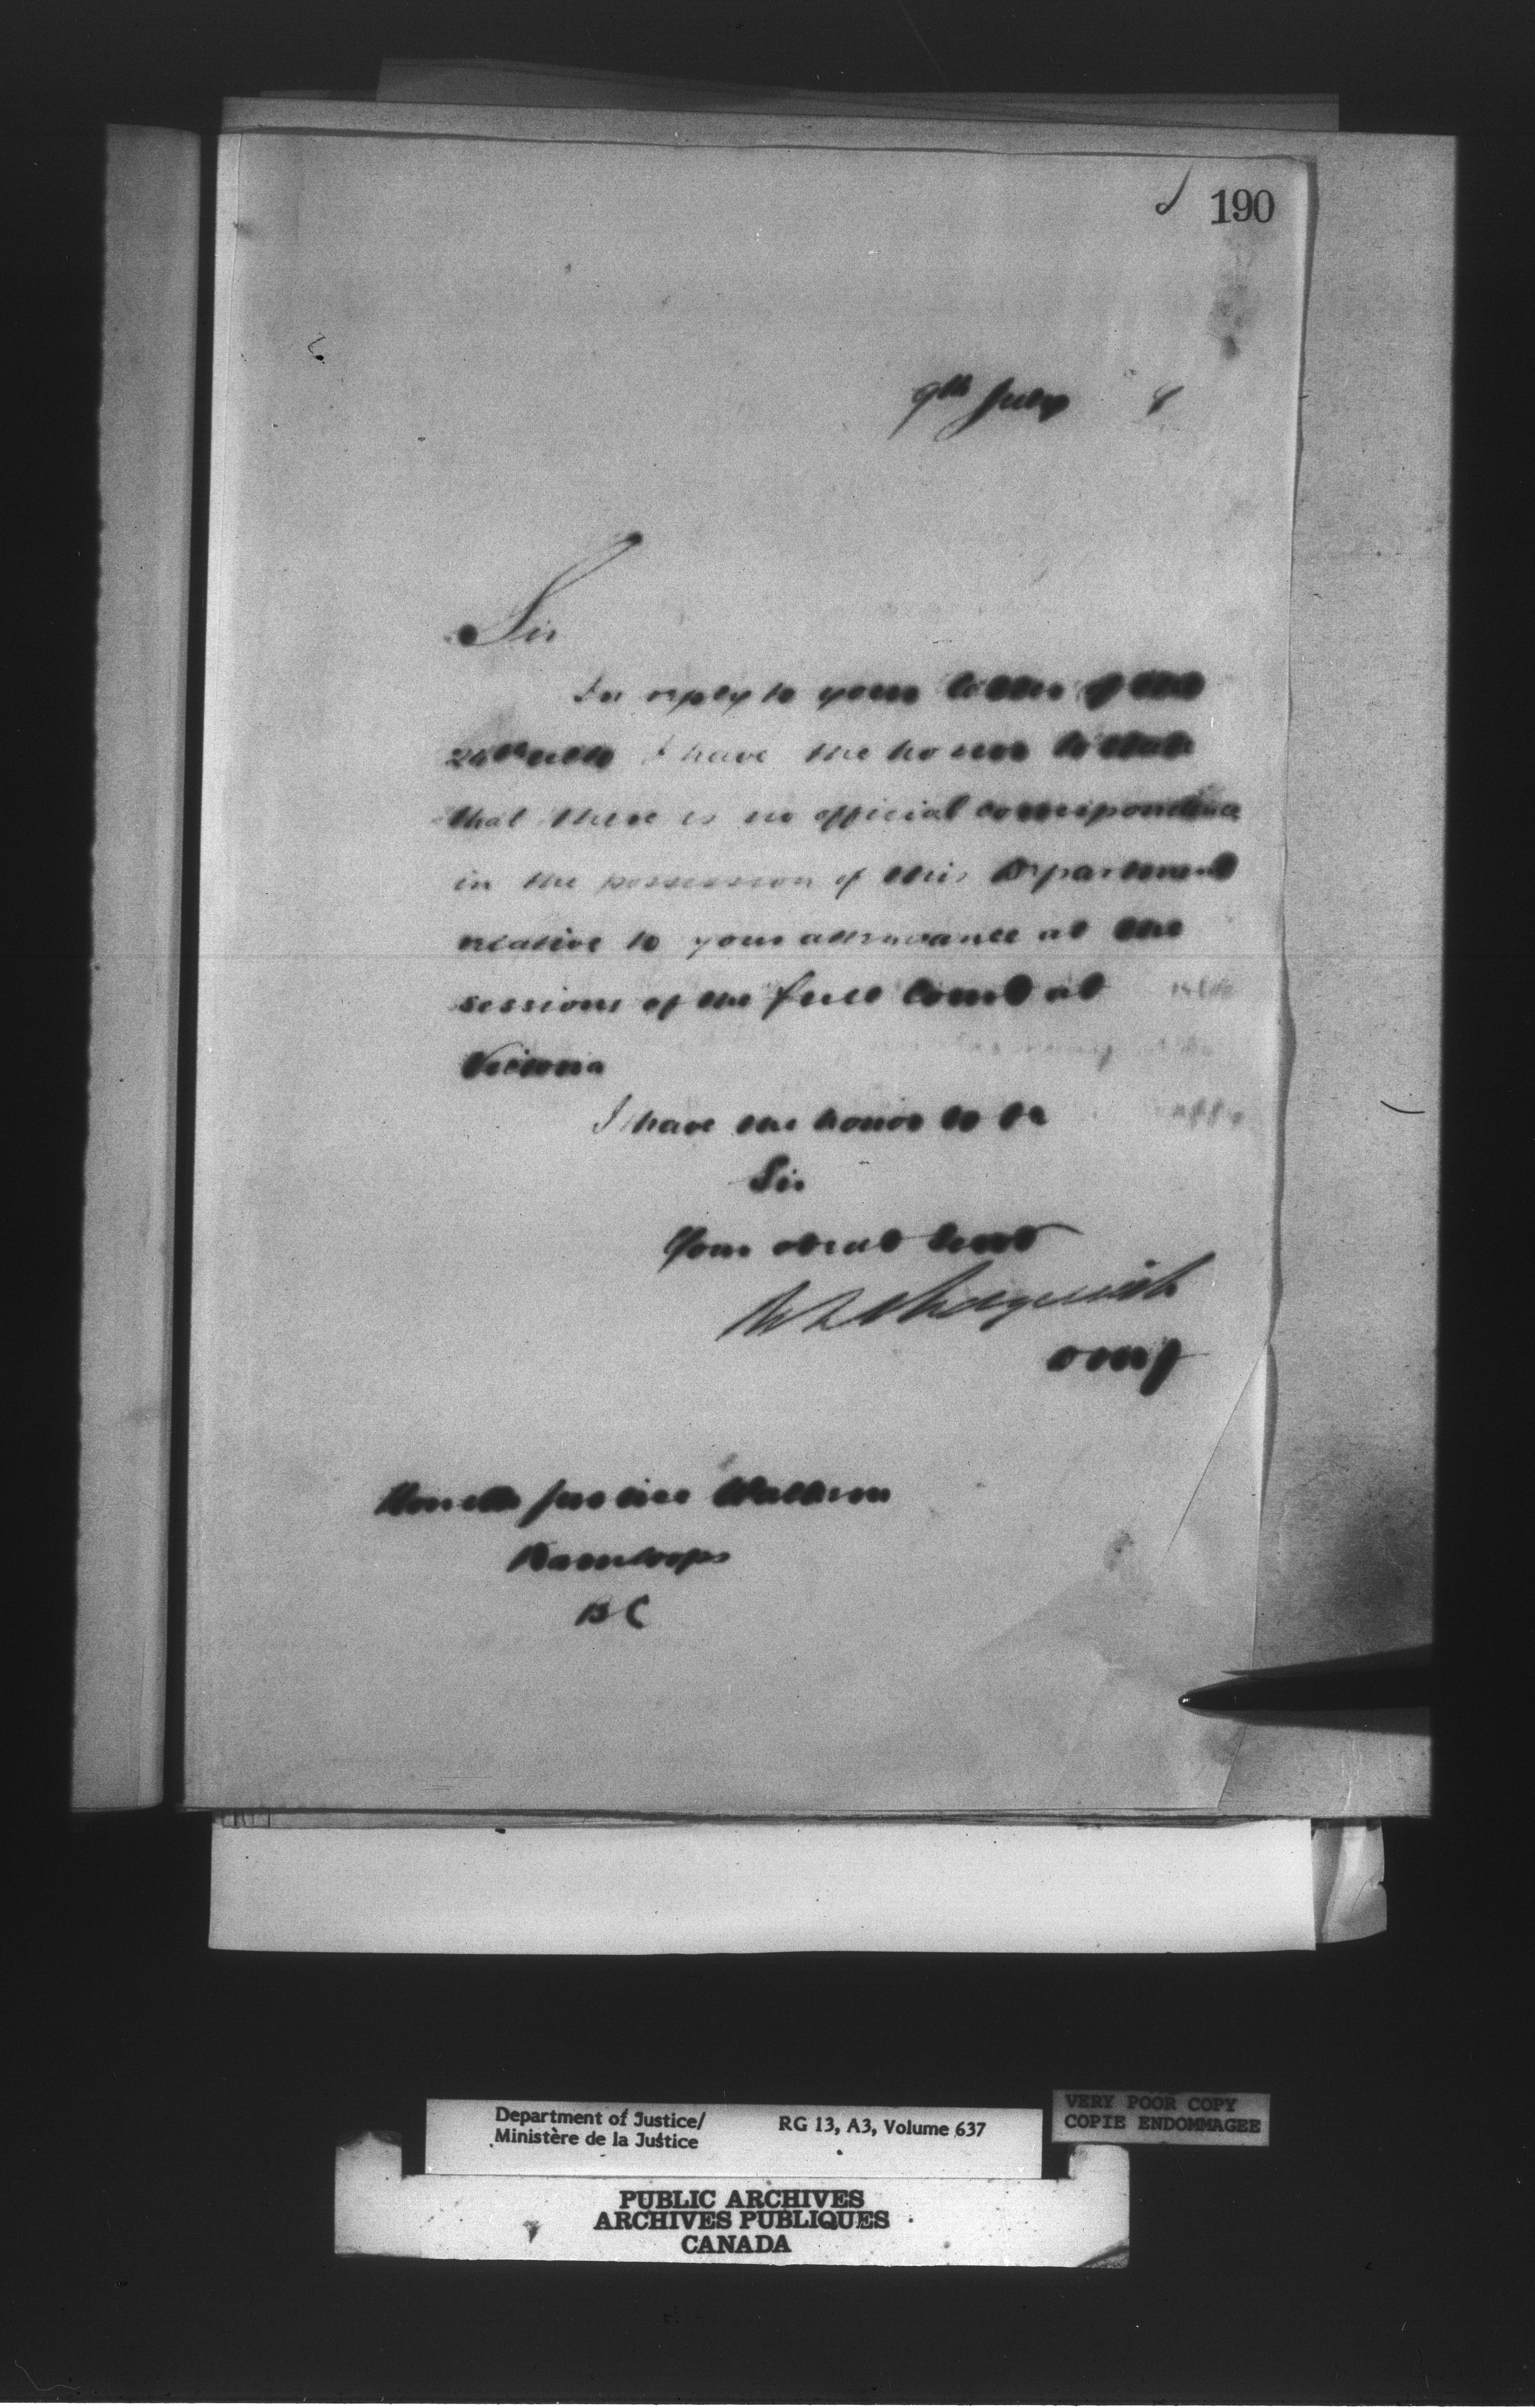 190
9th July 8
Sir
In reply to your letter of the
24th ulto I have the honor to state
that there is no official correspondence
in the possession of this Department
relative to your attendance at the
sessions of the full Court at
Victoria
I have the honor to be
Sir
Your obedt Servt
Sedgewick
DMJ
Honble Justice Walkem
Kamloops
BC
Department of Justice/
Ministère de la Justice
RG 13, A3, Volume 637
VERY POOR COPY
COPIE ENDOMMAGEE
PUBLIC ARCHIVES
ARCHIVES PUBLIQUES
CANADA